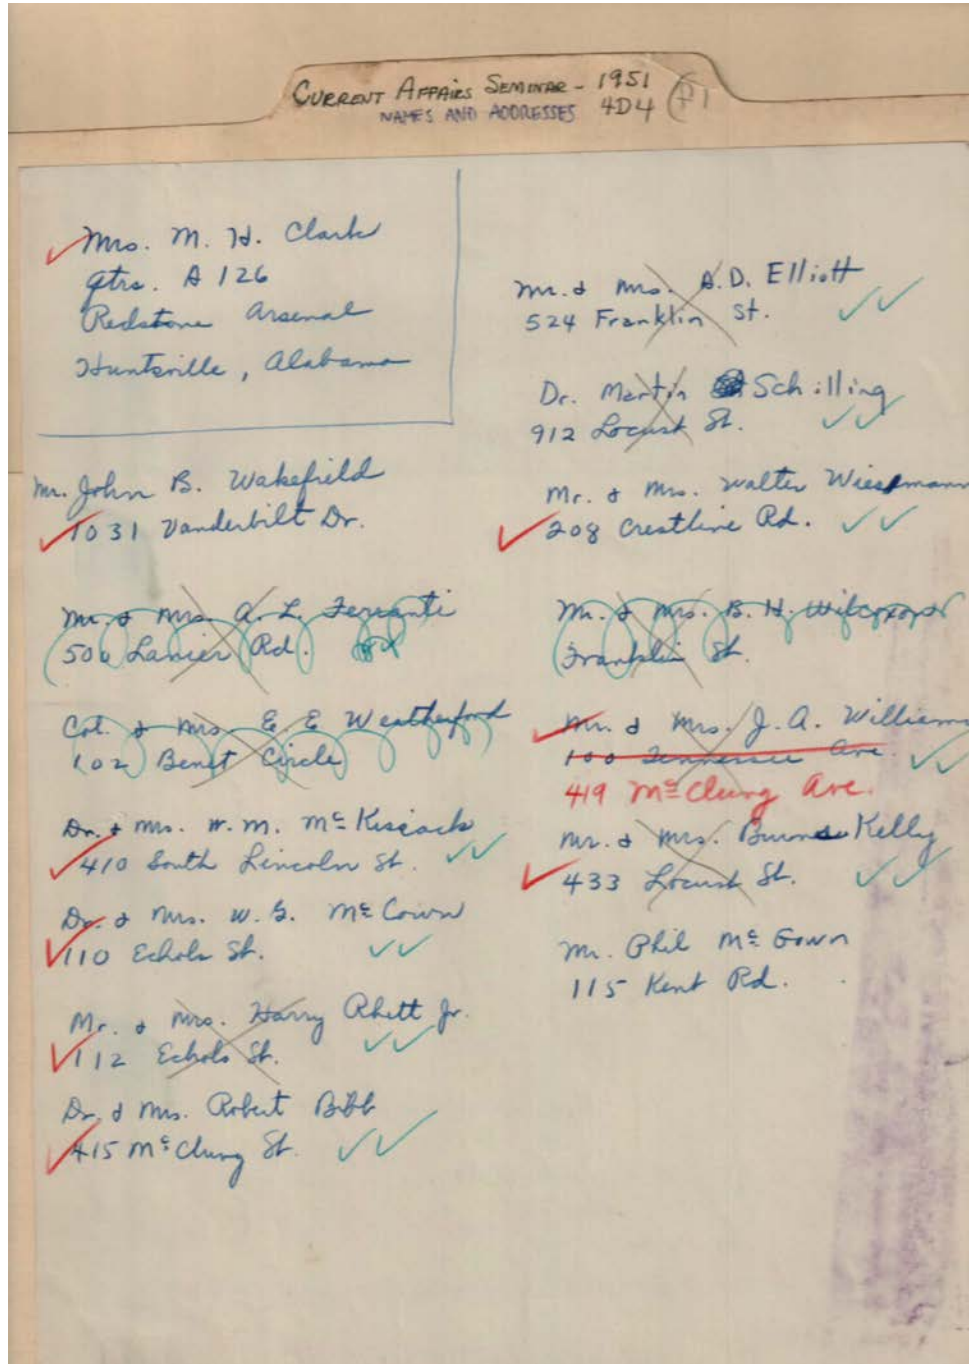 CURRENT AFFAIRS SEMINAR - 1951
NAMES AND ADDRESSES 4D4 P1
Mrs. M. H. Clark
Qtrs. A 126
Redstone Arsenal
Huntsville, Alabama
Mr. John B. Wakefield
1031 Vanderbilt Dr.
Mr. & Mrs. A. L. Ferranti
500 Lanier Rd.
Col. & Mrs. E. E Weatherford
102 Benet Circle
Dr. & Mrs. W. M. Mc Kissack
410 South Lincoln St.
Dr. & Mrs. W. G. Mc Cown
110 Echols St.
Mr. & Mrs. Harry Rhett Jr.
112 Echols St.
Dr. & Mrs. Robert Bibb
415 Mc Clung St.
Mr. & Mrs. A. D. Elliott
524 Franklin St.
Dr. Martin Schilling
912 Locust St.
Mr. & Mrs. Walter Wiesemann
208 Crestline Rd.
Mr. & Mrs. B. H.
Franklin St.
Mr. & Mrs. J. A. Williams
100 Tennessee Ave.
419 Mc Clung Ave.
Mr. & Mrs. Kelly
433 Locust St.
Mr. Phil Mc Gown
115 Kent Rd.